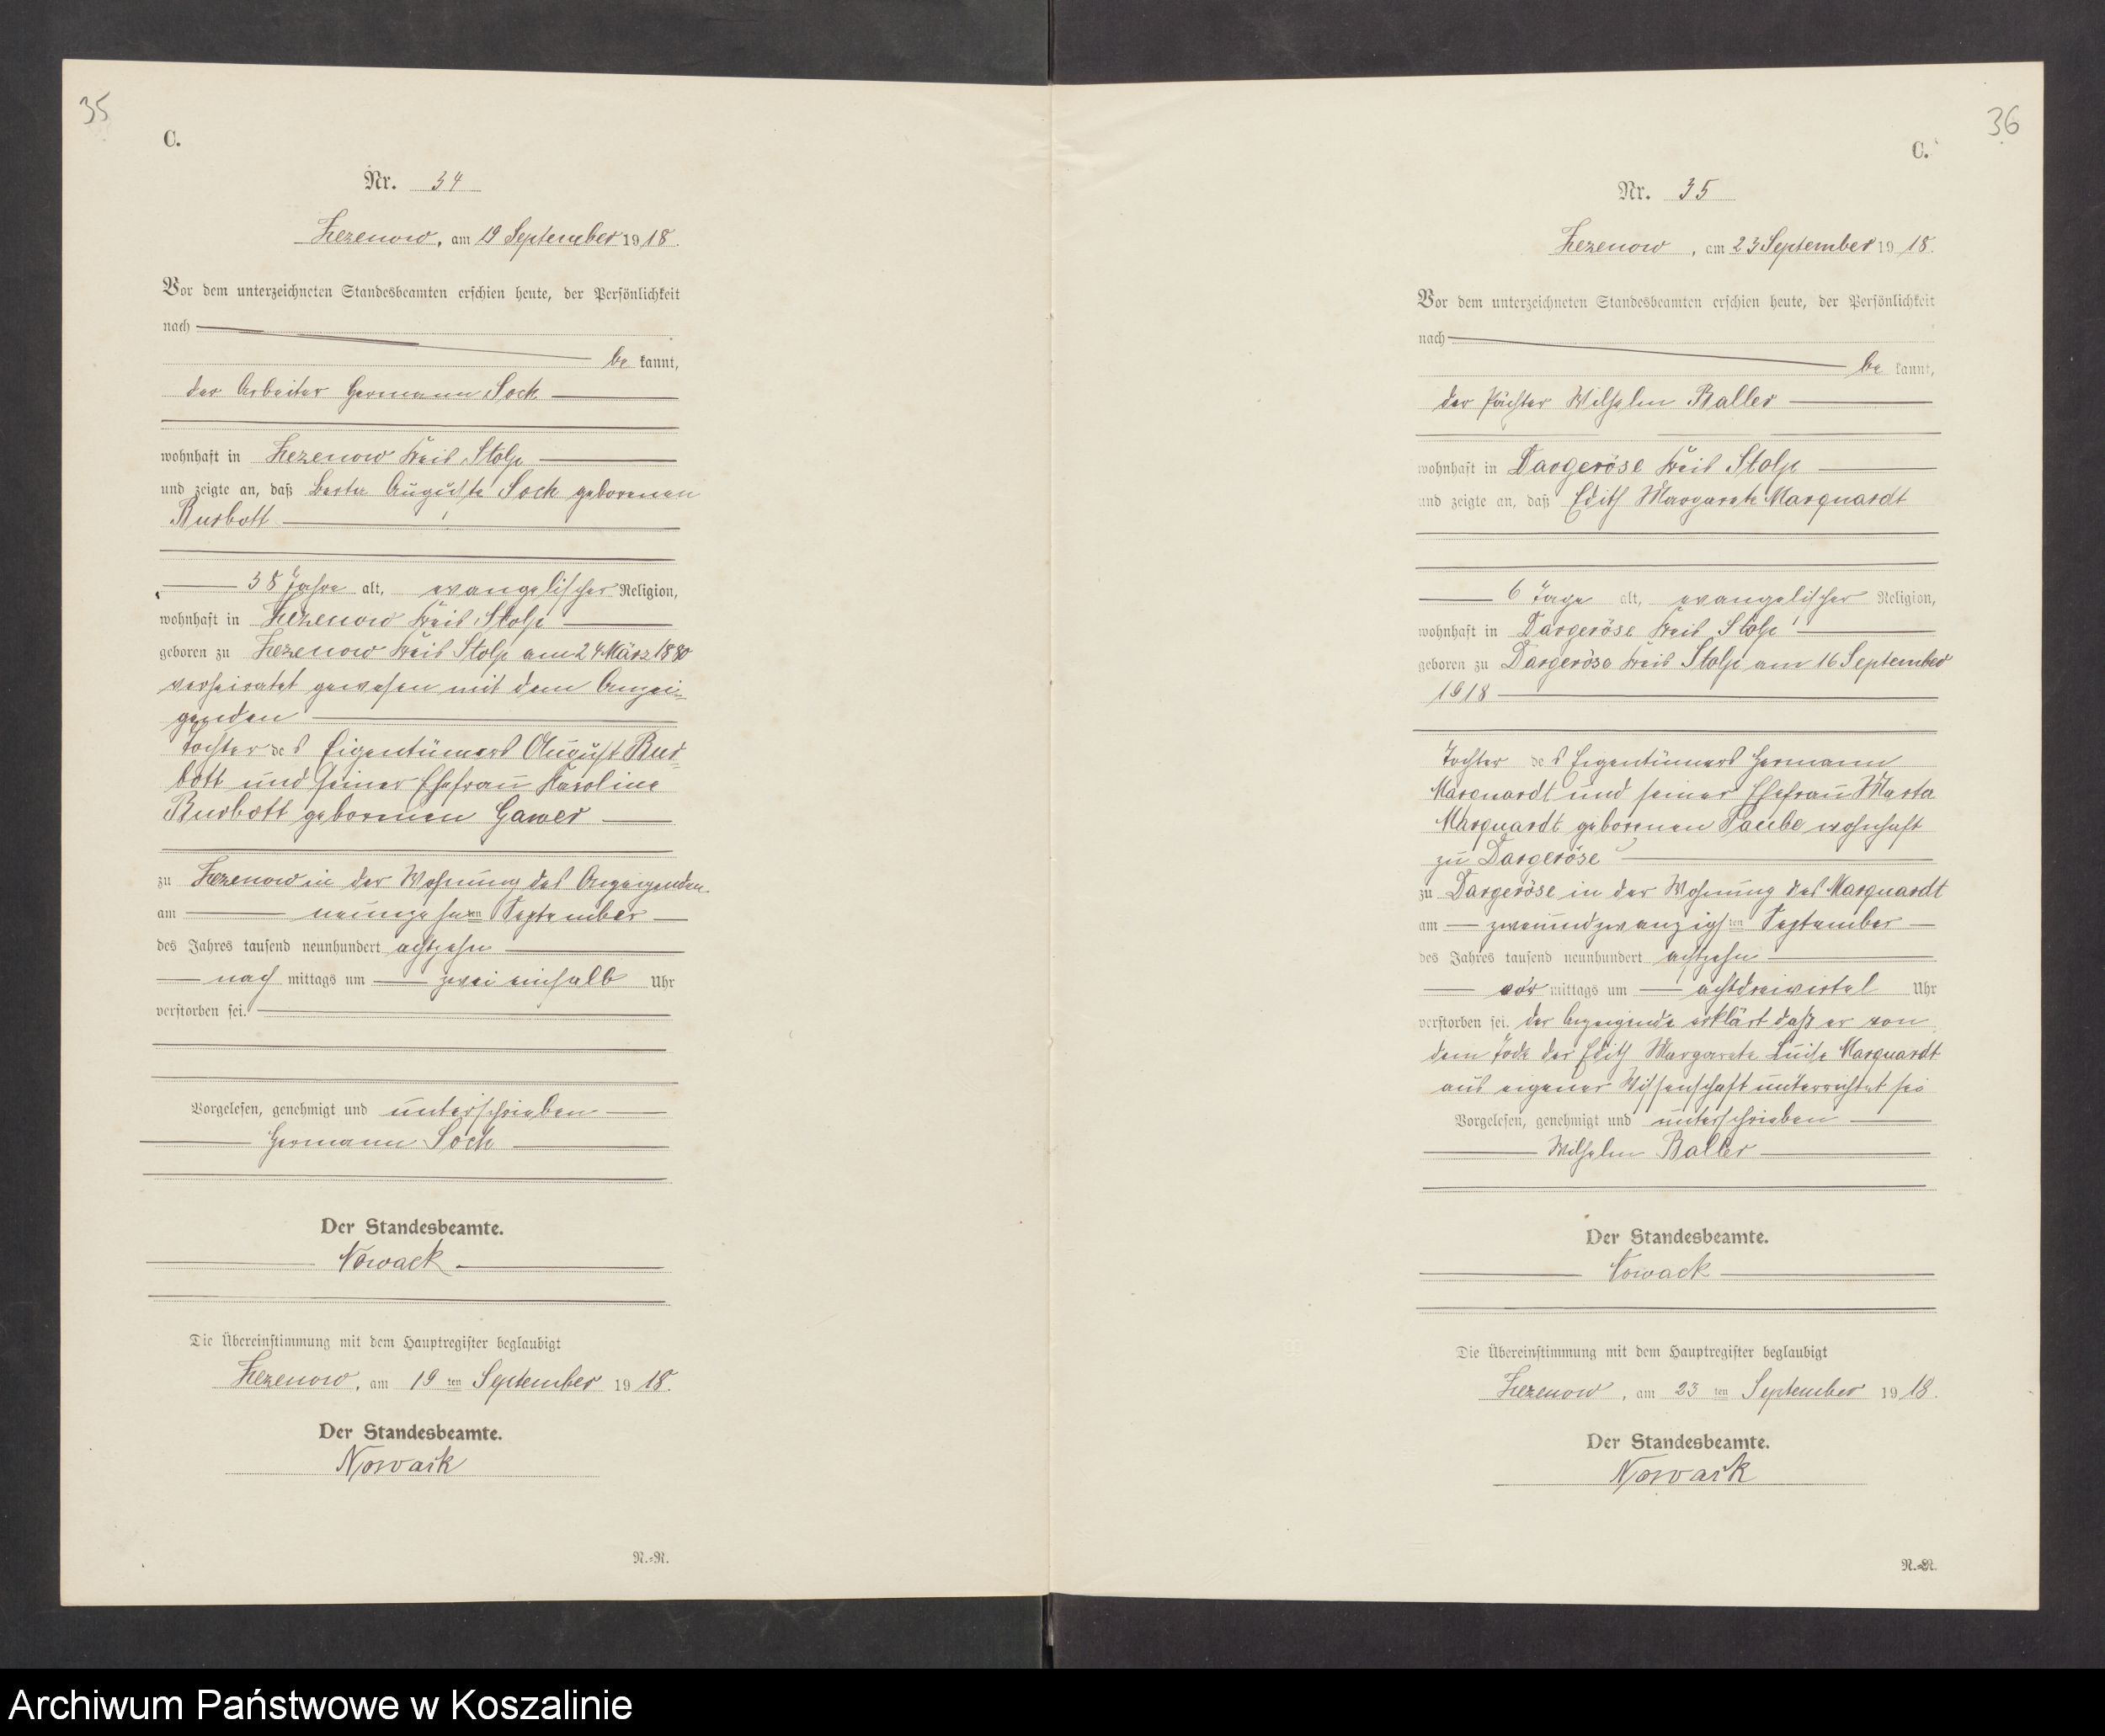 35
C.
Nr. 34
Zezenow, am 19 September 1918.
Vor dem unterzeichneten Standesbeamten erschien heute, der Persönlichkeit
nach
be kannt,
der Arbeiter Hermann Sock
wohnhaft in Zezenow Kreis Stolp
und zeigte an, daß Berta Auguste Sock geborenen
Burbott
38 Jahre alt, evangelischer Religion,
wohnhaft in Zezenow Kreis Stolp
geboren zu Zezenow Kreis Stolp am 24 März 1880
verheiratet gewesen mit dem Anzei-
genden
Tochter des Eigentümers August Bur-
bott und seiner Ehefrau Karoline
Burbott geborenen Gawer
zu Zezenow in der Wohnung des Anzeigenden
am neunzehnten September
des Jahres tausend neunhundert achtzehn
nach mittags um zwei einhalb Uhr
verstorben sei.
Vorgelesen, genehmigt und unterschrieben
Hermann Sock
Der Standesbeamte.
Nowack
Die Übereinstimmung mit dem Hauptregister beglaubigt
Zezenow, am 19 ten September 1918.
Der Standesbeamte.
Nowack
N.-N.
36
C.
Nr. 35
Zezenow, am 23 September 1918.
Vor dem unterzeichneten Standesbeamten erschien heute, der Persönlichkeit
nach
be kannt,
der Pächter Wilhelm Baller
wohnhaft in Dargeröse Kreis Stolp
und zeigte an, daß Edith Margarete Marquardt
6 Tage alt, evangelischer Religion,
wohnhaft in Dargeröse Kreis Stolp
geboren zu Dargeröse Kreis Stolp am 16 September
1918
Tochter des Eigentümers Hermann
Marquardt und seiner Ehefrau Marta
Marquardt geborenen Taube wohnhaft
zu Dargeröse
zu Dargeröse in der Wohnung des Marquardt
am zweiundzwanzigsten September
des Jahres tausend neunhundert achtzehn
vor mittags um achtdreiviertel Uhr
verstorben sei. Der Anzeigende erklärt daß er von
dem Tode der Edith Margarete Luise Marquardt
aus eigener Wissenschaft unterrichtet sei
Vorgelesen, genehmigt und unterschrieben
Wilhelm Baller
Der Standesbeamte.
Nowack
Die Übereinstimmung mit dem Hauptregister beglaubigt
Zezenow, am 23 ten September 1918.
Der Standesbeamte.
Nowack
N.-N.
Archiwum Państwowe w Koszalinie